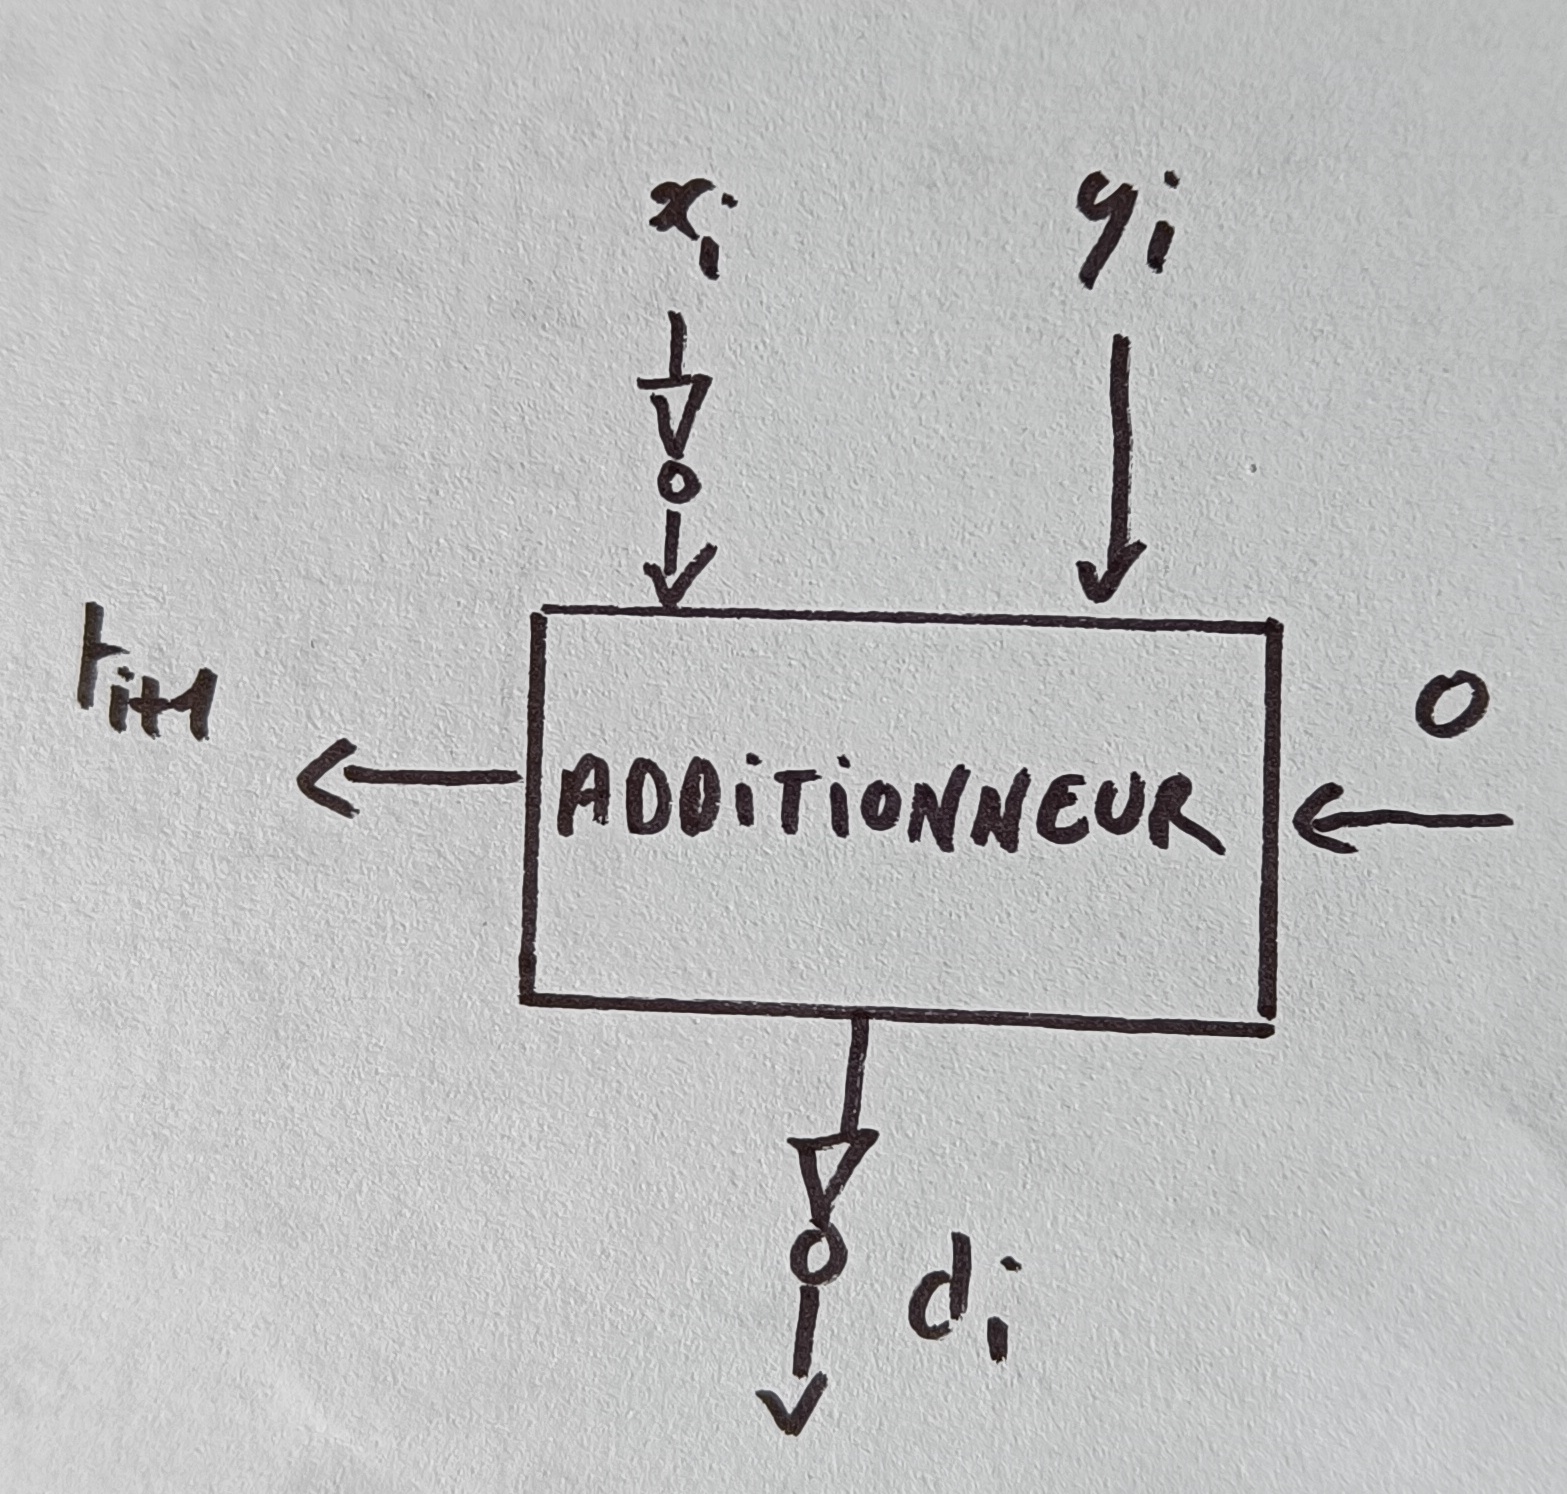 xi yi
ri+1
0
ADDiTiONNEUR
di